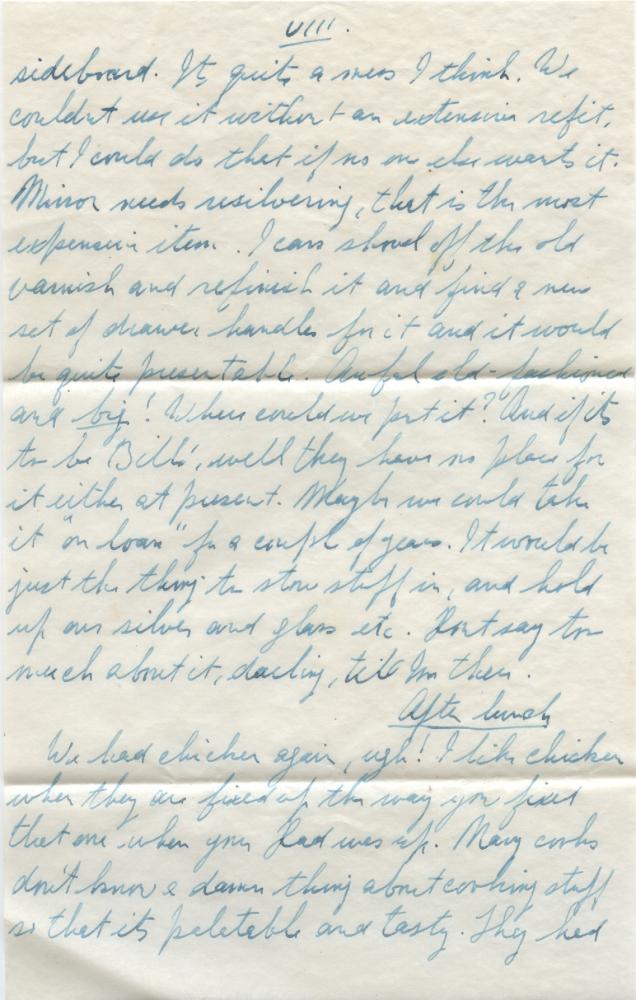 VIII.
sideboard. Its quite a mess I think. We
couldnt use it without an extensive refit,
but I could do that if no one else wants it.
Mirror needs resilvering, that is the most
expensive item. I can shovel off the old
varnish and refinish it and find a new
set of drawer handles for it and it would
be quite presentable. Awful old-fashioned
and big! Where could we put it? And if its
to be Bills', well they have no place for
it either at present. Maybe we could take
it "on loan" for a couple of years. It would be
just the thing to stow stuff in, and hold
up our silver and glass etc. Dont say too
much about it, darling, till Im there.
After lunch
We had chicken again, ugh! I like chicken
when they are fixed up the way you fixed
that one when your Dad was up. Navy cooks
don't know a damn thing about cooking stuff
so that its paletable and tasty. They had